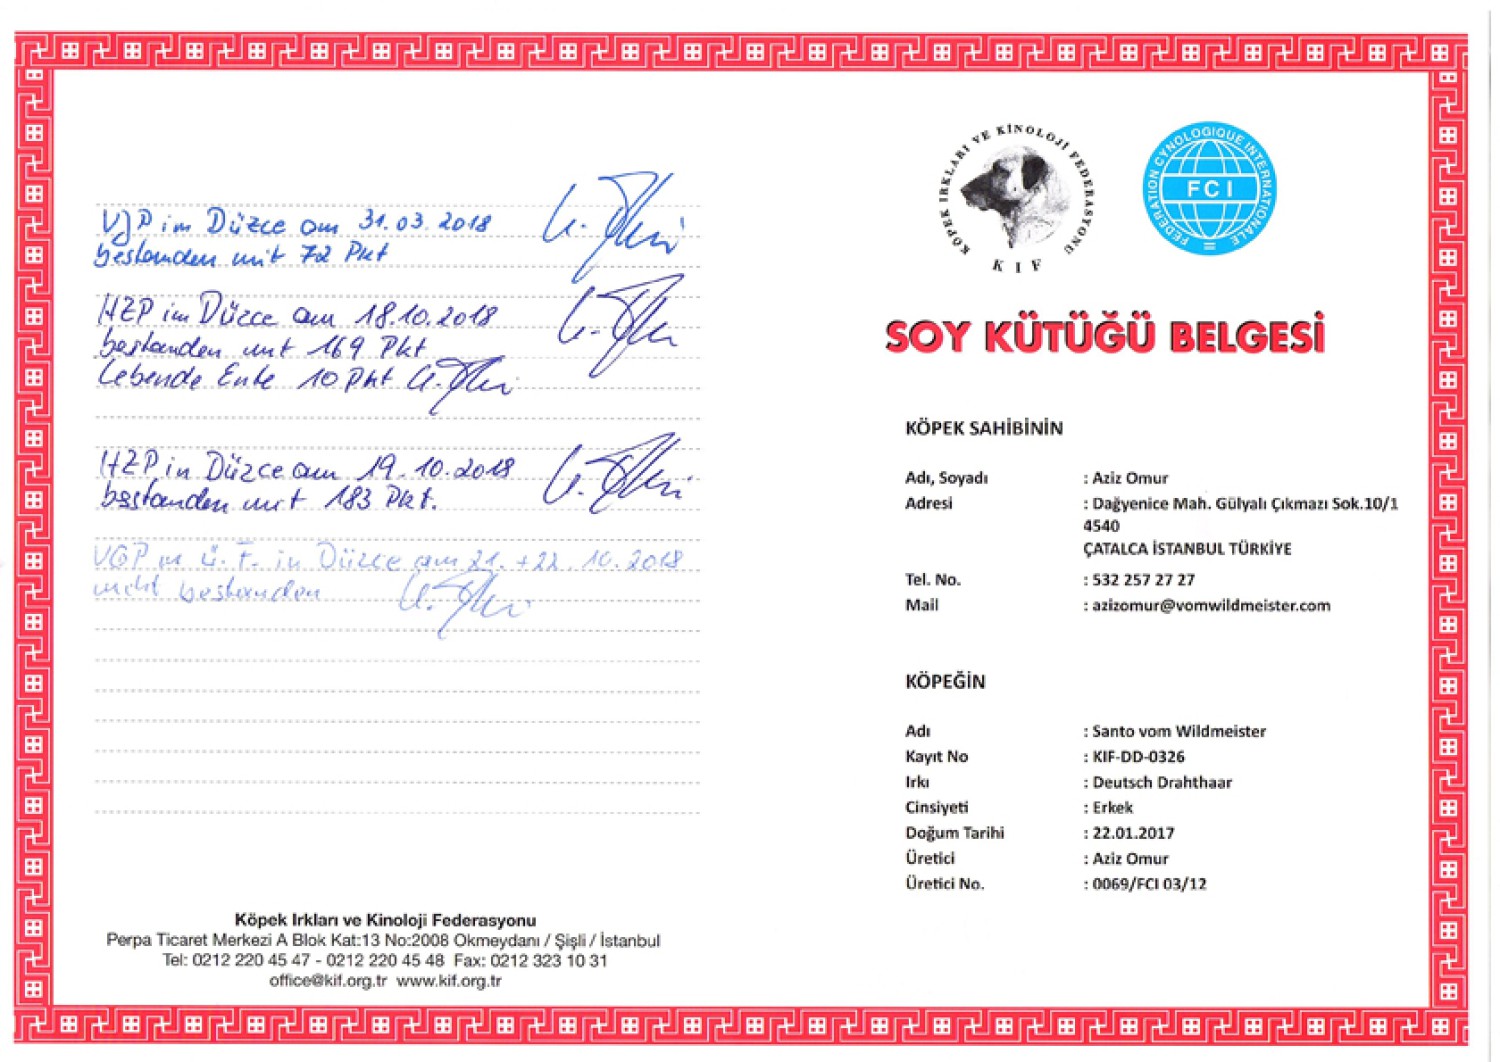 VJP in Düzce am 31.03.2018
bestanden mit 72 Pkt
HZP in Düzce am 18.10.2018
bestanden mit 169 Pkt
Lebende Ente 10 Pkt
HZP in Düzce am 19.10.2018
bestanden mit 183 Pkt.
VGP m. Ü. F. in Düzce am 21. + 22. 10. 2018
nicht bestanden
Köpek Irkları ve Kinoloji Federasyonu
Perpa Ticaret Merkezi A Blok Kat:13 No:2008 Okmeydanı / Şişli / İstanbul
Tel: 0212 220 45 47 - 0212 220 45 48 Fax: 0212 323 10 31
office@kif.org.tr www.kif.org.tr
KÖPEK IRKLARI VE KİNOLOJİ FEDERASYONU
K I F
FEDERATION CYNOLOGIQUE INTERNATIONALE
FCI
SOY KÜTÜĞÜ BELGESİ
KÖPEK SAHİBİNİN
Adı, Soyadı : Aziz Omur
Adresi : Dağyenice Mah. Gülyalı Çıkmazı Sok.10/1
4540
ÇATALCA İSTANBUL TÜRKİYE
Tel. No. : 532 257 27 27
Mail : azizomur@vomwildmeister.com
KÖPEĞİN
Adı : Santo vom Wildmeister
Kayıt No : KIF-DD-0326
Irkı : Deutsch Drahthaar
Cinsiyeti : Erkek
Doğum Tarihi : 22.01.2017
Üretici : Aziz Omur
Üretici No. : 0069/FCI 03/12